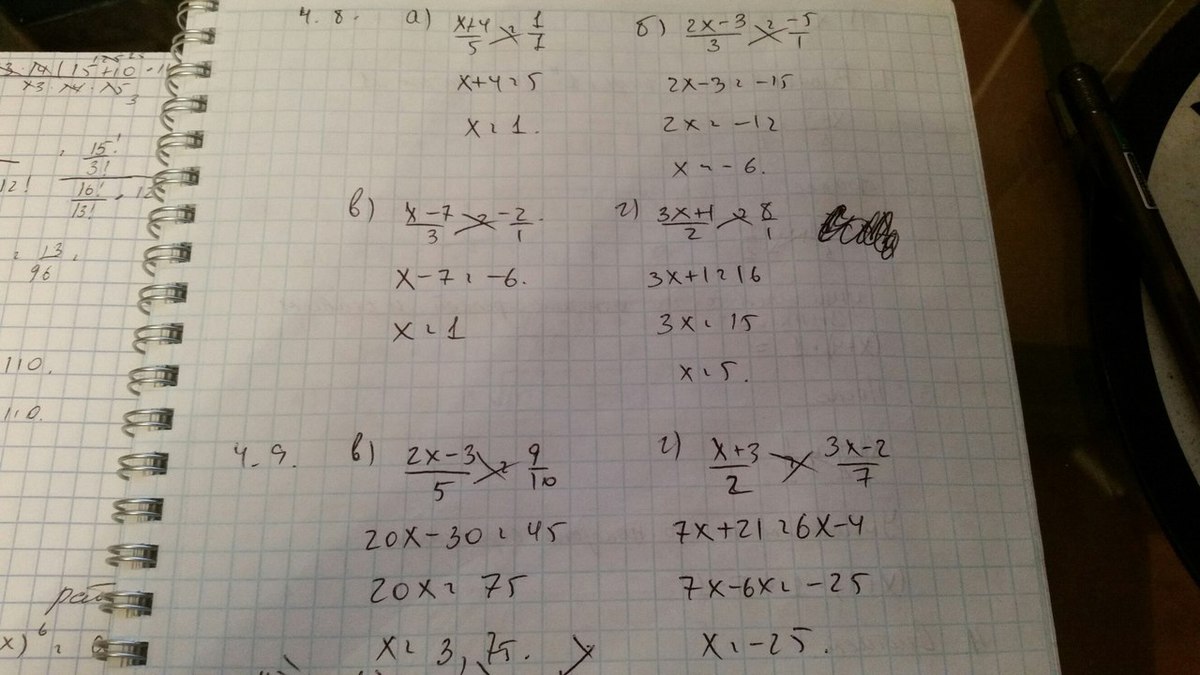 4.8. а) (x+4)/5 = 1/1
x+4=5
x=1.
б) (2x-3)/3 = -5/1
2x-3=-15
2x=-12
x=-6.
в) (x-7)/3 = -2/1.
x-7=-6.
x=1
г) (3x+1)/2 = 8/1
3x+1=16
3x=15
x=5.
4.9. в) (2x-3)/5 = 9/10
20x-30=45
20x=75
x=3,75.
г) (x+3)/2 = (3x-2)/7
7x+21=6x-4
7x-6x=-25
x=-25.
15!/3!
16!/13!
12!
= 13/96.
110.
110.